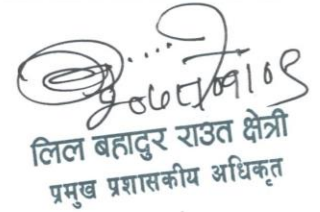 लिल बहादुर राउत क्षेत्री
प्रमुख प्रशासकीय अधिकृत